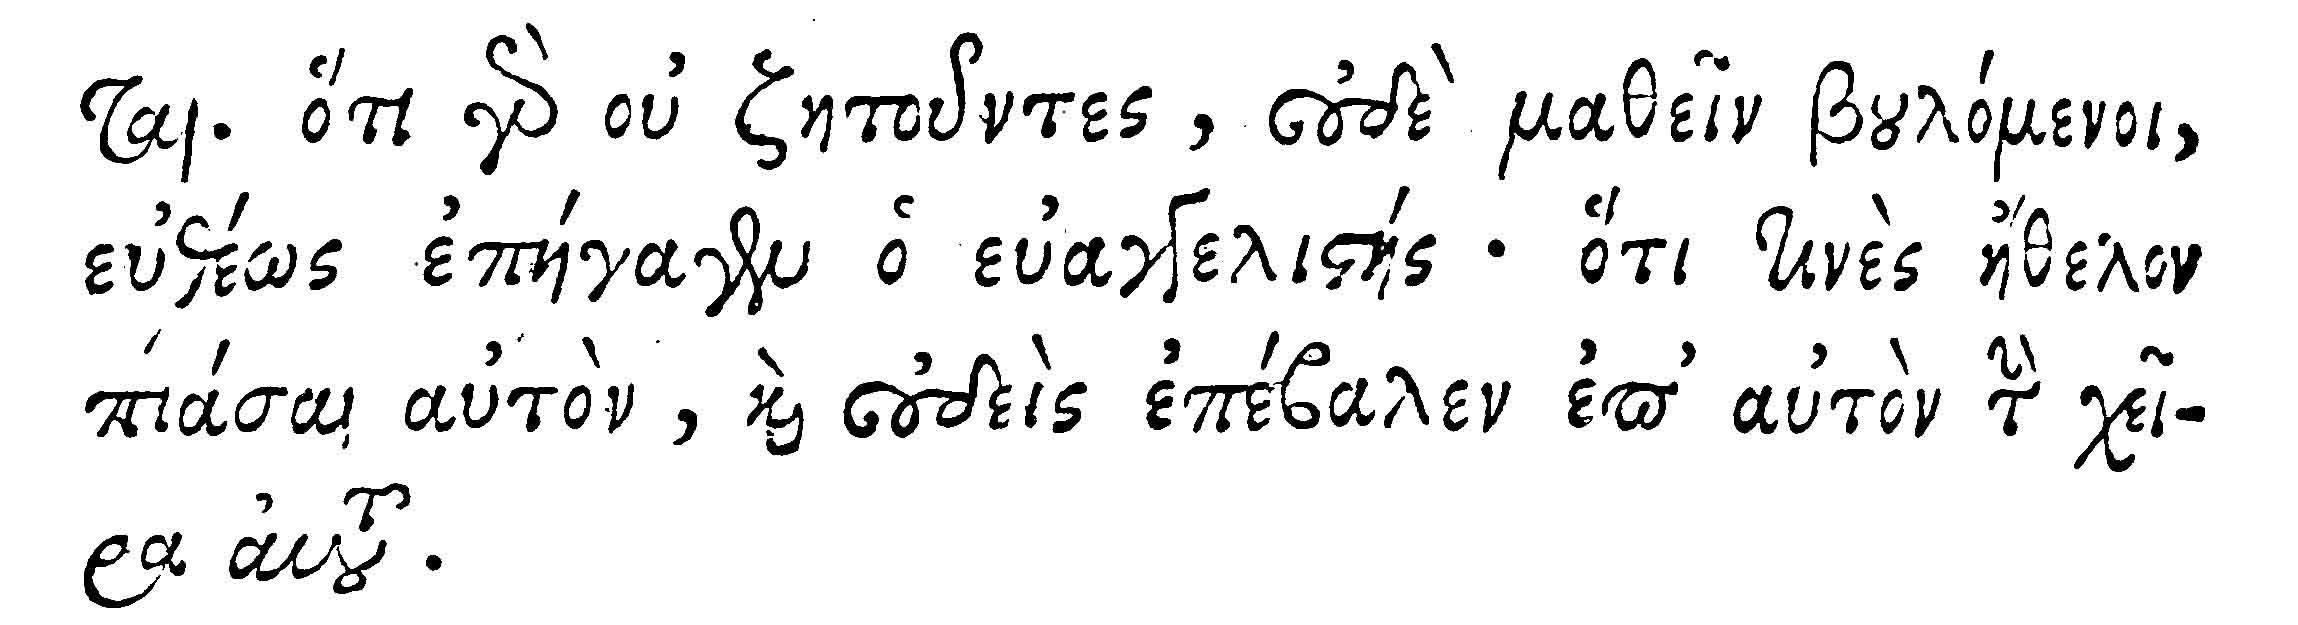 ται. ὅτι γὰρ οὐ ζητοῦντες, οὐδὲ μαθεῖν βουλόμενοι,
εὐθέως ἐπήγαγεν ὁ εὐαγγελιστής· ὅτι τινὲς ἤθελον
πιάσαι αὐτὸν, καὶ οὐδεὶς ἐπέβαλεν ἐπ' αὐτὸν τὴν χεῖ-
ρα αὐτοῦ.